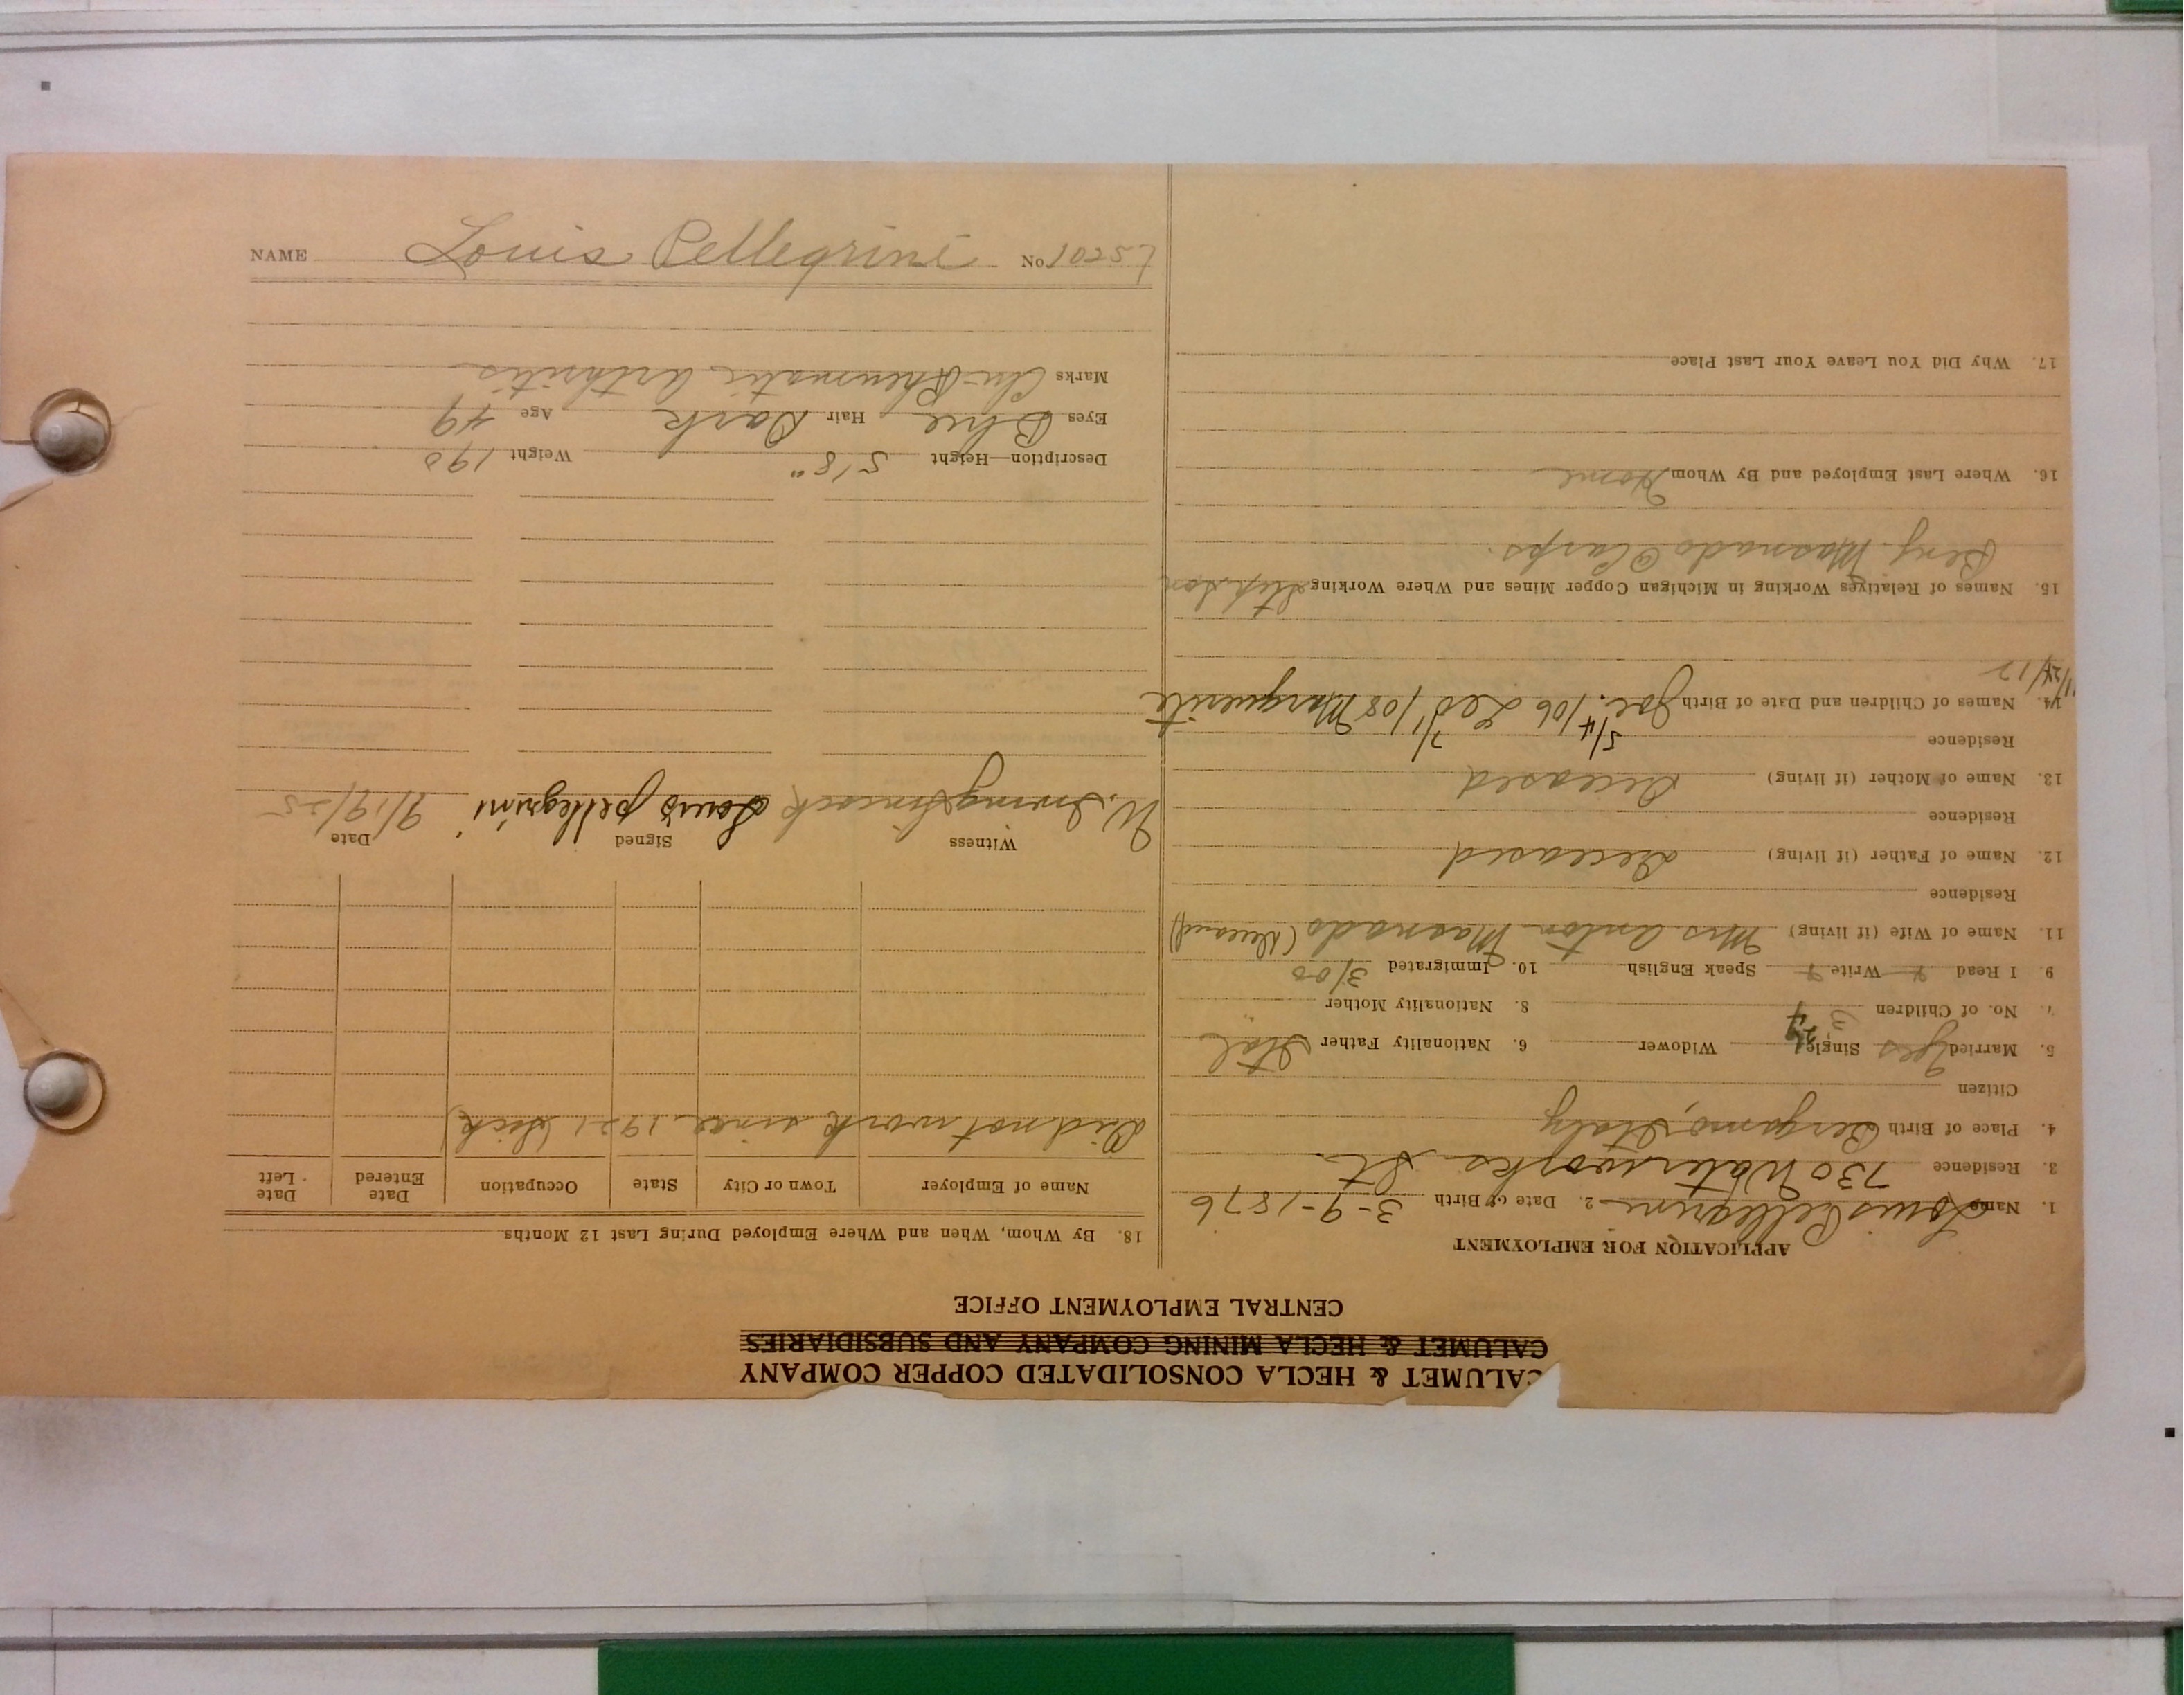 CALUMET & HECLA CONSOLIDATED COPPER COMPANY
CALUMET & HECLA MINING COMPANY AND SUBSIDIARIES
CENTRAL EMPLOYMENT OFFICE
APPLICATION FOR EMPLOYMENT
1. Name Louis Pellegrini 2. Date of Birth 3-9-1876
3. Residence 730 Waterworks St.
4. Place of Birth Bergamo, Italy
Citizen
5. Married yes Single Widower 6. Nationality Father Ital
7. No. of Children 3 8. Nationality Mother "
9. I Read Write Speak English 10. Immigrated 3/00
11. Name of Wife (if living) Mrs Anton Masnado (deceased)
Residence
12. Name of Father (if living) deceased
Residence
13. Name of Mother (if living) deceased
Residence
14. Names of Children and Date of Birth Joe 5/4/06 Leo 7/1/08 Marguerite
11/24/12
15. Names of Relatives Working in Michigan Copper Mines and Where Working Stepson
Benj. Masnado @ Carps.
16. Where Last Employed and By Whom Home
17. Why Did You Leave Your Last Place
18. By Whom, When and Where Employed During Last 12 Months
Name of Employer Town or City State Occupation Date Entered Date Left
Did not work since 1921 (sick)
Witness Signed Date
W. Irving Louis pellegrini 9/19/25
Description—Height 5'8" Weight 190
Eyes Blue Hair Dark Age 49
Marks Chr. Rheumatic arthritis
NAME Louis Pellegrini No. 10257